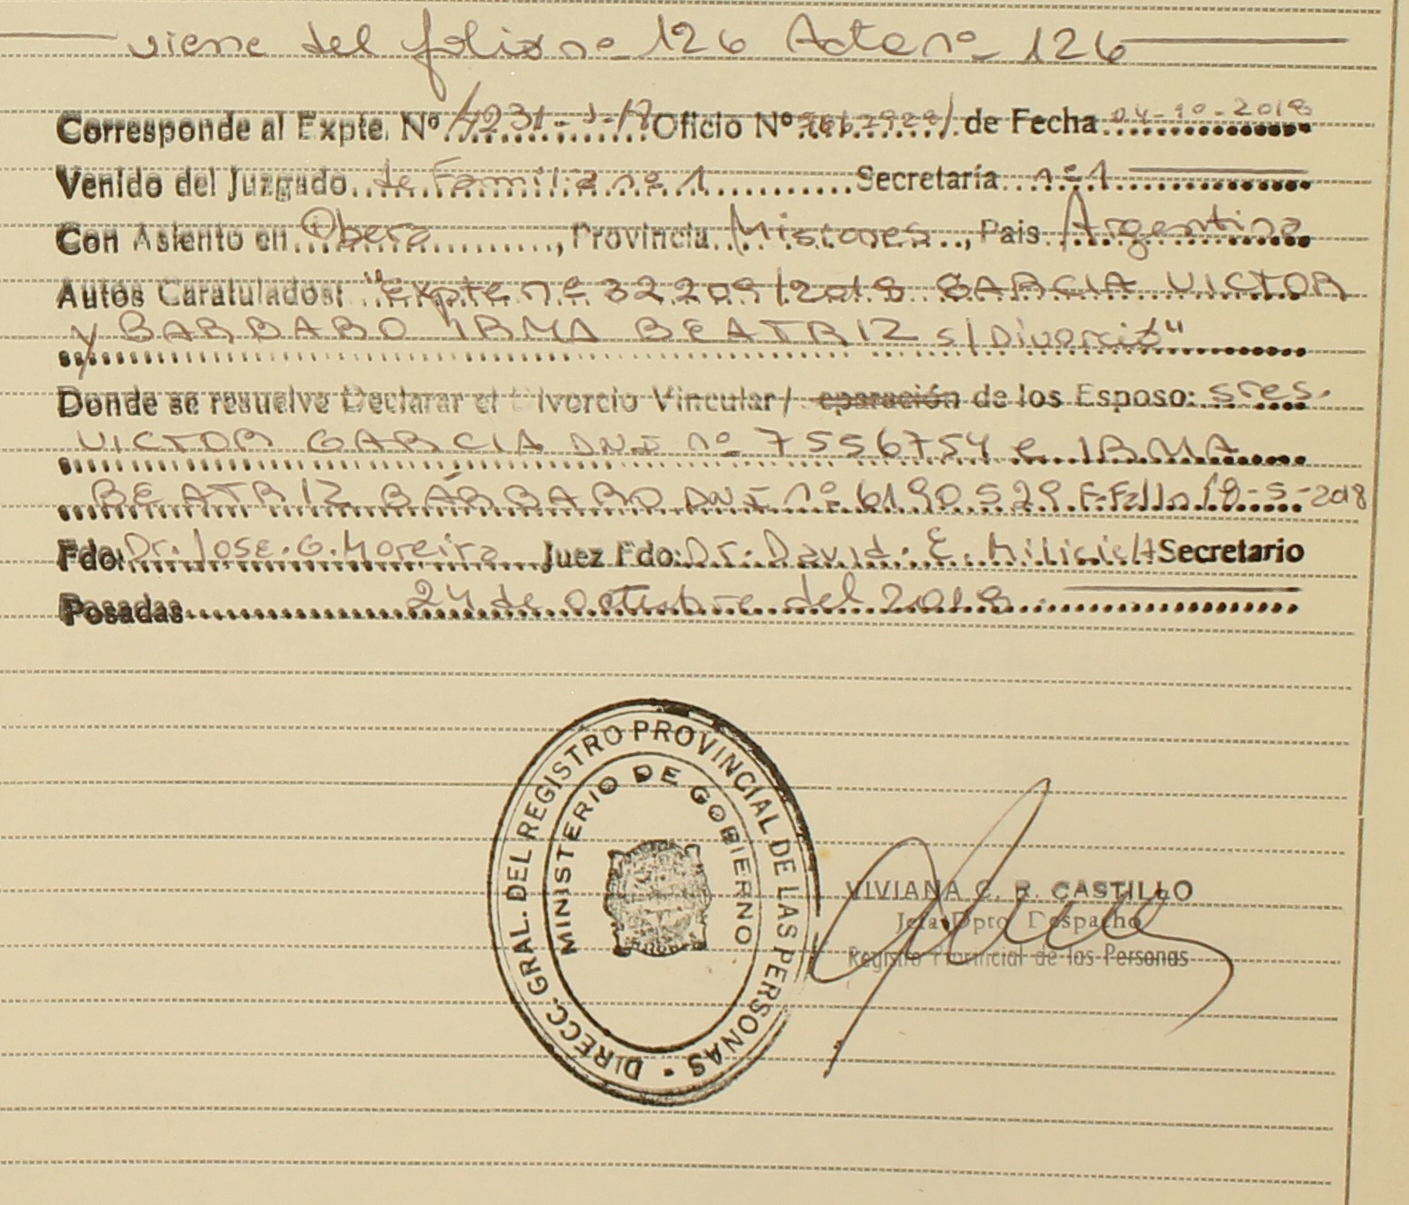 viene del folio nº 126 Acta nº 126
Corresponde al Expte. Nº 4231-J-17 Oficio Nº de Fecha 04-10-2018
Venido del Juzgado de Familia nº 1 Secretaría nº 1
Con Asiento en Oberá, Provincia Misiones, Pais Argentina
Autos Caratulados: "Expte nº 32209/2018 GARCIA VICTOR
y BARBARO IRMA BEATRIZ s/Divorcio"
Donde se resuelve Declarar el Divorcio Vincular/ eparación de los Esposo: sres.
VICTOR GARCIA DNI nº 7556754 e IRMA
BEATRIZ BÁRBARO DNI nº 6190529 F.Fallo 18-5-2018
Fdo: Dr. Jose. G. Moreira Juez Fdo: Dr. David. E. Secretario
Posadas 24 de octubre del 2018
DIRECC. GRAL. DEL REGISTRO PROVINCIAL DE LAS PERSONAS
MINISTERIO DE GOBIERNO
VIVIANA C. R. CASTILLO
Jefa Dpto Despacho
Registro Provincial de las Personas